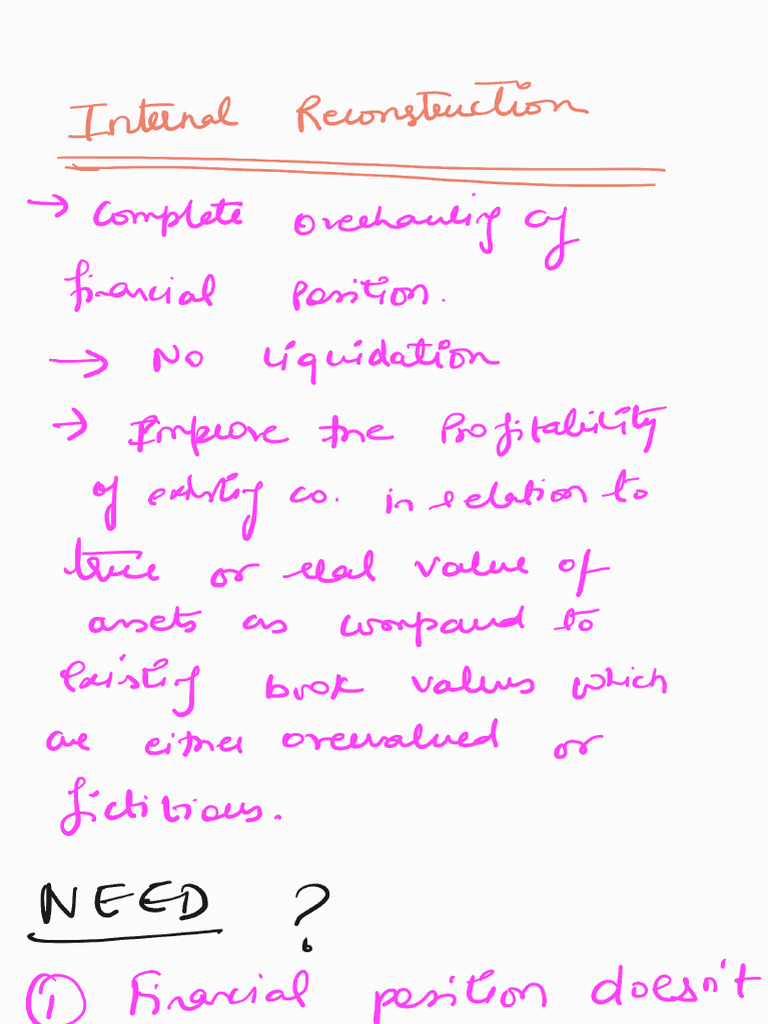 Internal Reconstruction
→ Complete overhauling of
financial position.
→ No Liquidation
→ Improve the Profitability
of existing co. in relation to
true or real value of
assets as compared to
Existing book values which
are either overvalued or
fictitious.
NEED ?
① Financial position doesn't